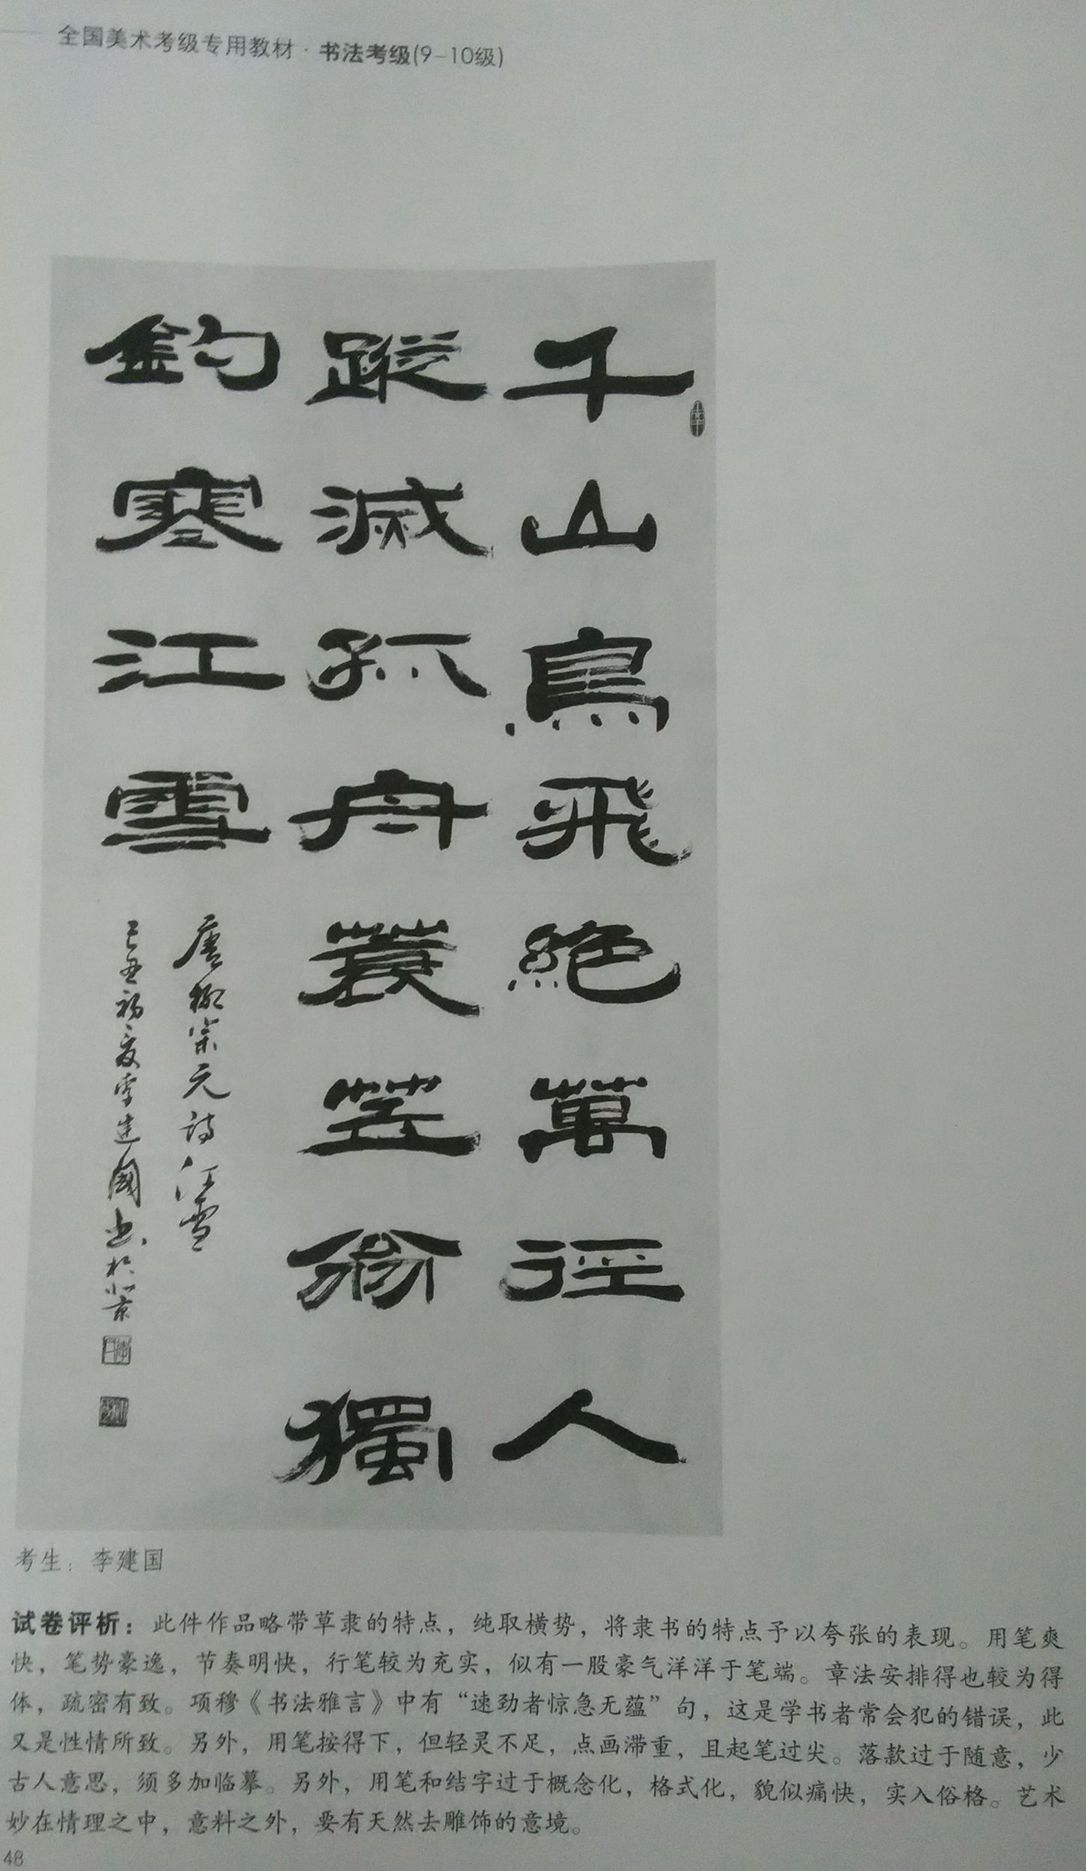 全国美术考级专用教材·书法考级(9-10级)
千山鳥飛絶萬徑人
蹤滅孤舟蓑笠翁獨
釣寒江雪
唐柳宗元詩江雪
己丑初夏李建國书於北京
考生：李建国
试卷评析：此件作品略带草隶的特点，纯取横势，将隶书的特点予以夸张的表现。用笔爽
快，笔势豪逸，节奏明快，行笔较为充实，似有一股豪气洋洋于笔端。章法安排得也较为得
体，疏密有致。项穆《书法雅言》中有“速劲者惊急无蕴”句，这是学书者常会犯的错误，此
又是性情所致。另外，用笔按得下，但轻灵不足，点画滞重，且起笔过尖。落款过于随意，少
古人意思，须多加临摹。另外，用笔和结字过于概念化，格式化，貌似痛快，实入俗格。艺术
妙在情理之中，意料之外，要有天然去雕饰的意境。
48